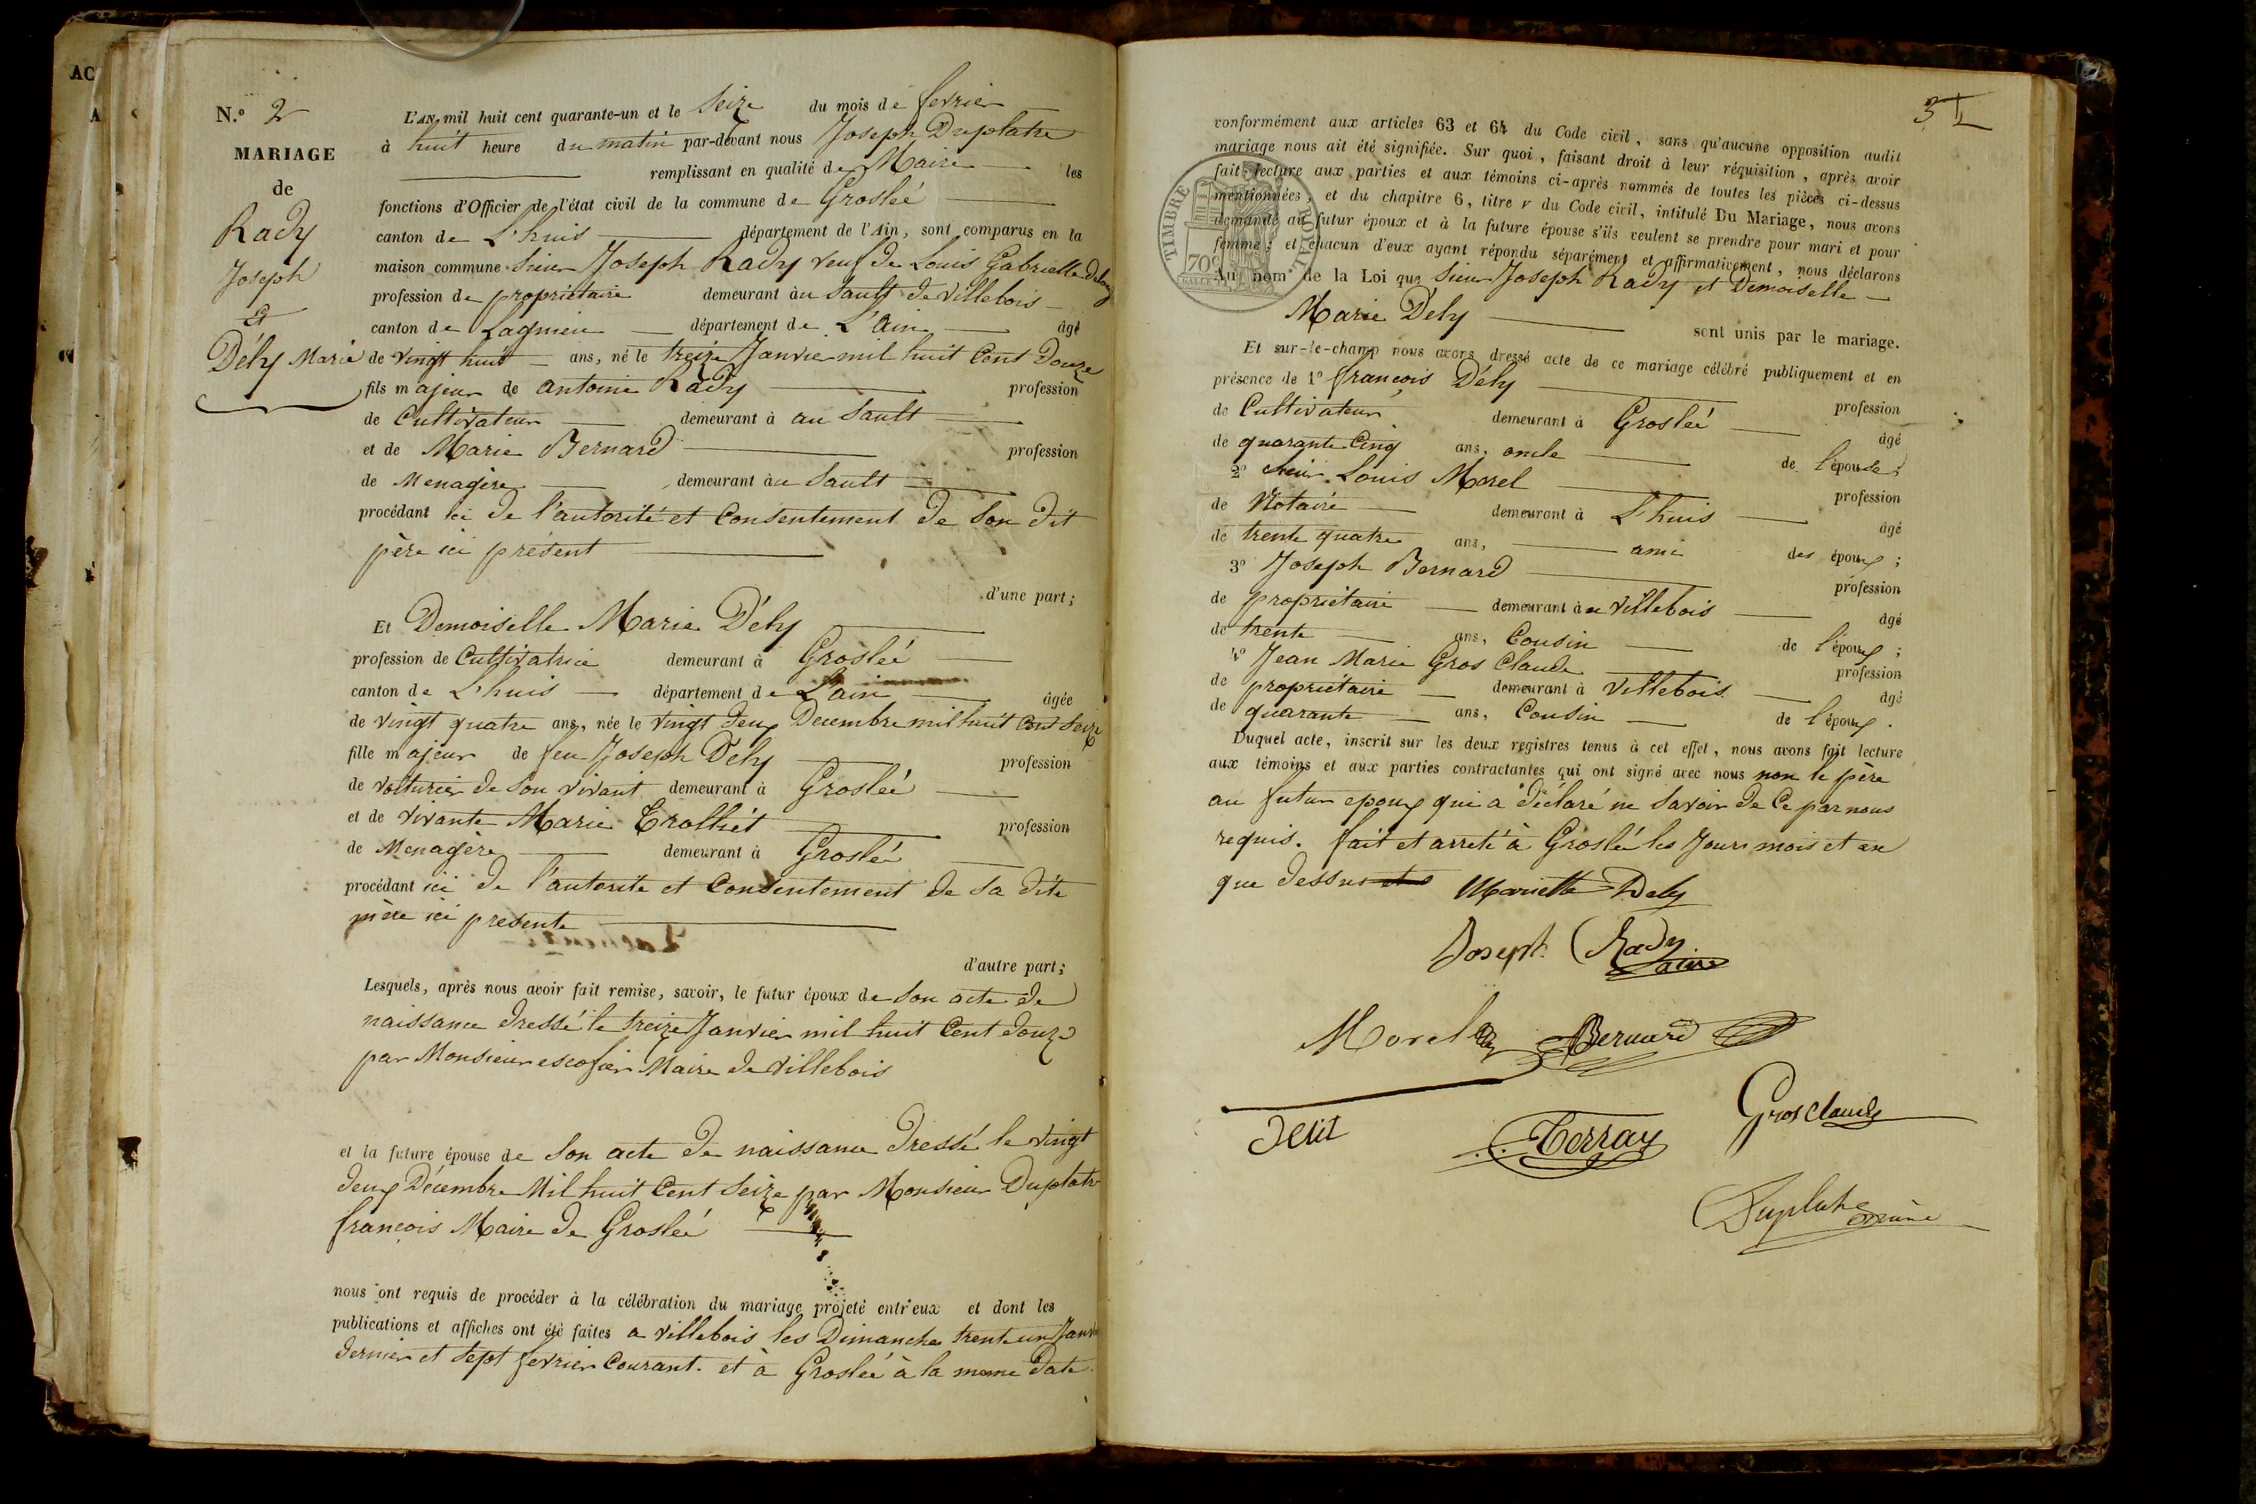 AC
A
N.º 2
MARIAGE
de
Rady
Joseph
et
Dély Marie
L'AN mil huit cent quarante-un et le Seize du mois de fevrier
à huit heure du matin par-devant nous Joseph Duplatre
remplissant en qualité de Maire les
fonctions d'Officier de l'état civil de la commune de Grosleé
canton de L'huis département de l'Ain, sont comparus en la
maison commune Sieur Joseph Rady veuf de Louis Gabrielle
profession de propriétaire demeurant au Sault de Villebois
canton de Lagnieu département de L'Ain âgé
de vingt huit ans, né le treize Janvier mil huit Cent Douze
fils majeur de antoine Rady profession
de Cultivateur demeurant à au Sault
et de Marie Bernard profession
de Menagère demeurant au Sault
procédant ici de l'autorité et Consentement de Son dit
père ici présent
d'une part;
Et Demoiselle Marie Dély
profession de Cultivatrice demeurant à Grosleé
canton de L'huis département de L'ain âgée
de vingt quatre ans, née le vingt deux Decembre mil huit Cent Seize
fille majeur de feu Joseph Dély profession
de voiturier de Son vivant demeurant à Grosleé
et de vivante Marie Trolliét profession
de Menagère demeurant à Grosleé
procédant ici de l'autorite et Consentement de Sa dite
mère ici presente
d'autre part;
Lesquels, après nous avoir fait remise, savoir, le futur époux de Son acte de
naissance dressé le treize Janvier mil huit Cent douze
par Monsieur escofier Maire de Villebois
et la future épouse de Son acte de naissance dressé le vingt
deux Décembre Mil huit Cent Seize par Monsieur Duplatre
françois Maire de Grosleé
nous ont requis de procéder à la célébration du mariage projeté entr'eux et dont les
publications et affiches ont été faites a Villebois les Dimanche trente un Janvier
dernier et Sept fevrier Courant. et à Grosleé à la meme date.
3
conformément aux articles 63 et 64 du Code civil, sans qu'aucune opposition audit
mariage nous ait été signifiée. Sur quoi, faisant droit à leur réquisition, après avoir
fait lecture aux parties et aux témoins ci-après nommés de toutes les pièces ci-dessus
mentionnées, et du chapitre 6, titre v du Code civil, intitulé Du Mariage, nous avons
demandé au futur époux et à la future épouse s'ils veulent se prendre pour mari et pour
femme; et chacun d'eux ayant répondu séparément et affirmativement, nous déclarons
TIMBRE ROYAL
70c
Au nom de la Loi que Sieur Joseph Rady et Demoiselle
Marie Dély sont unis par le mariage.
Et sur-le-champ nous avons dressé acte de ce mariage célébré publiquement et en
présence de 1º francois Dély profession
de Cultivateur demeurant à Grosleé âgé
de quarante Cinq ans, oncle de l'épouse;
2º Sieur Louis Morel profession
de Notaire demeurant à L'huis âgé
de trente quatre ans, ami des époux;
3º Joseph Bernard profession
de propriétaire demeurant à Villebois âgé
de trente ans, Cousin de l'époux;
4º Jean Marie Gros Claude profession
de propriétaire demeurant à Villebois âgé
de quarante ans, Cousin de l'époux.
Duquel acte, inscrit sur les deux registres tenus à cet effet, nous avons fait lecture
aux témoins et aux parties contractantes qui ont signé avec nous non le père
au futur epoux qui a déclaré ne Savoir de Ce par nous
requis. fait et arreté à Groslé les Jours mois et an
que dessus
Mariette Dely
Joseph Rady
Morel Bernard
Grosclaude
Petit Terray
Duplatre maire